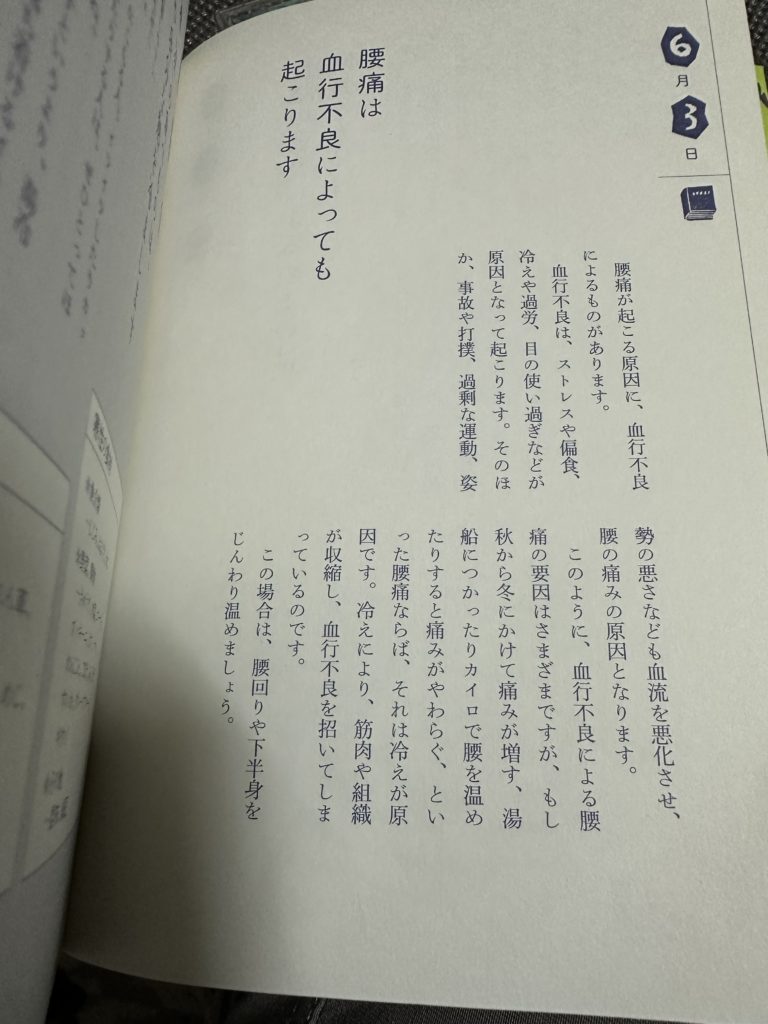 6
月
3
日
腰痛は
血行不良によっても
起こります
腰痛が起こる原因に、血行不良
によるものがあります。
血行不良は、ストレスや偏食、
冷えや過労、目の使い過ぎなどが
原因となって起こります。そのほ
か、事故や打撲、過剰な運動、姿
勢の悪さなども血流を悪化させ、
腰の痛みの原因となります。
このように、血行不良による腰
痛の要因はさまざまですが、もし
秋から冬にかけて痛みが増す、湯
船につかったりカイロで腰を温め
たりすると痛みがやわらぐ、とい
った腰痛ならば、それは冷えが原
因です。冷えにより、筋肉や組織
が収縮し、血行不良を招いてしま
っているのです。
この場合は、腰回りや下半身を
じんわり温めましょう。